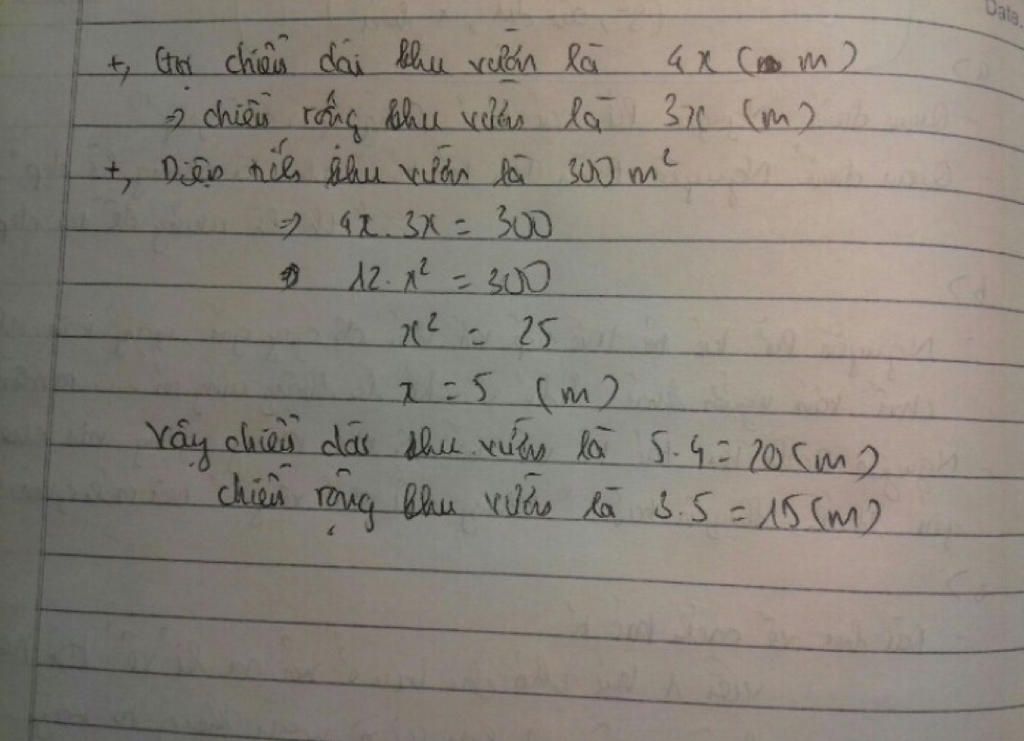 Data.
+, Gọi chiều dài khu vườn là 4x (m)
⇒ chiều rộng khu vườn là 3x (m)
+, Diện tích khu vườn là 300 m²
⇒ 4x. 3x = 300
12. x² = 300
x² = 25
x = 5 (m)
Vậy chiều dài khu vườn là 5.4 = 20 (m)
chiều rộng khu vườn là 3.5 = 15 (m)